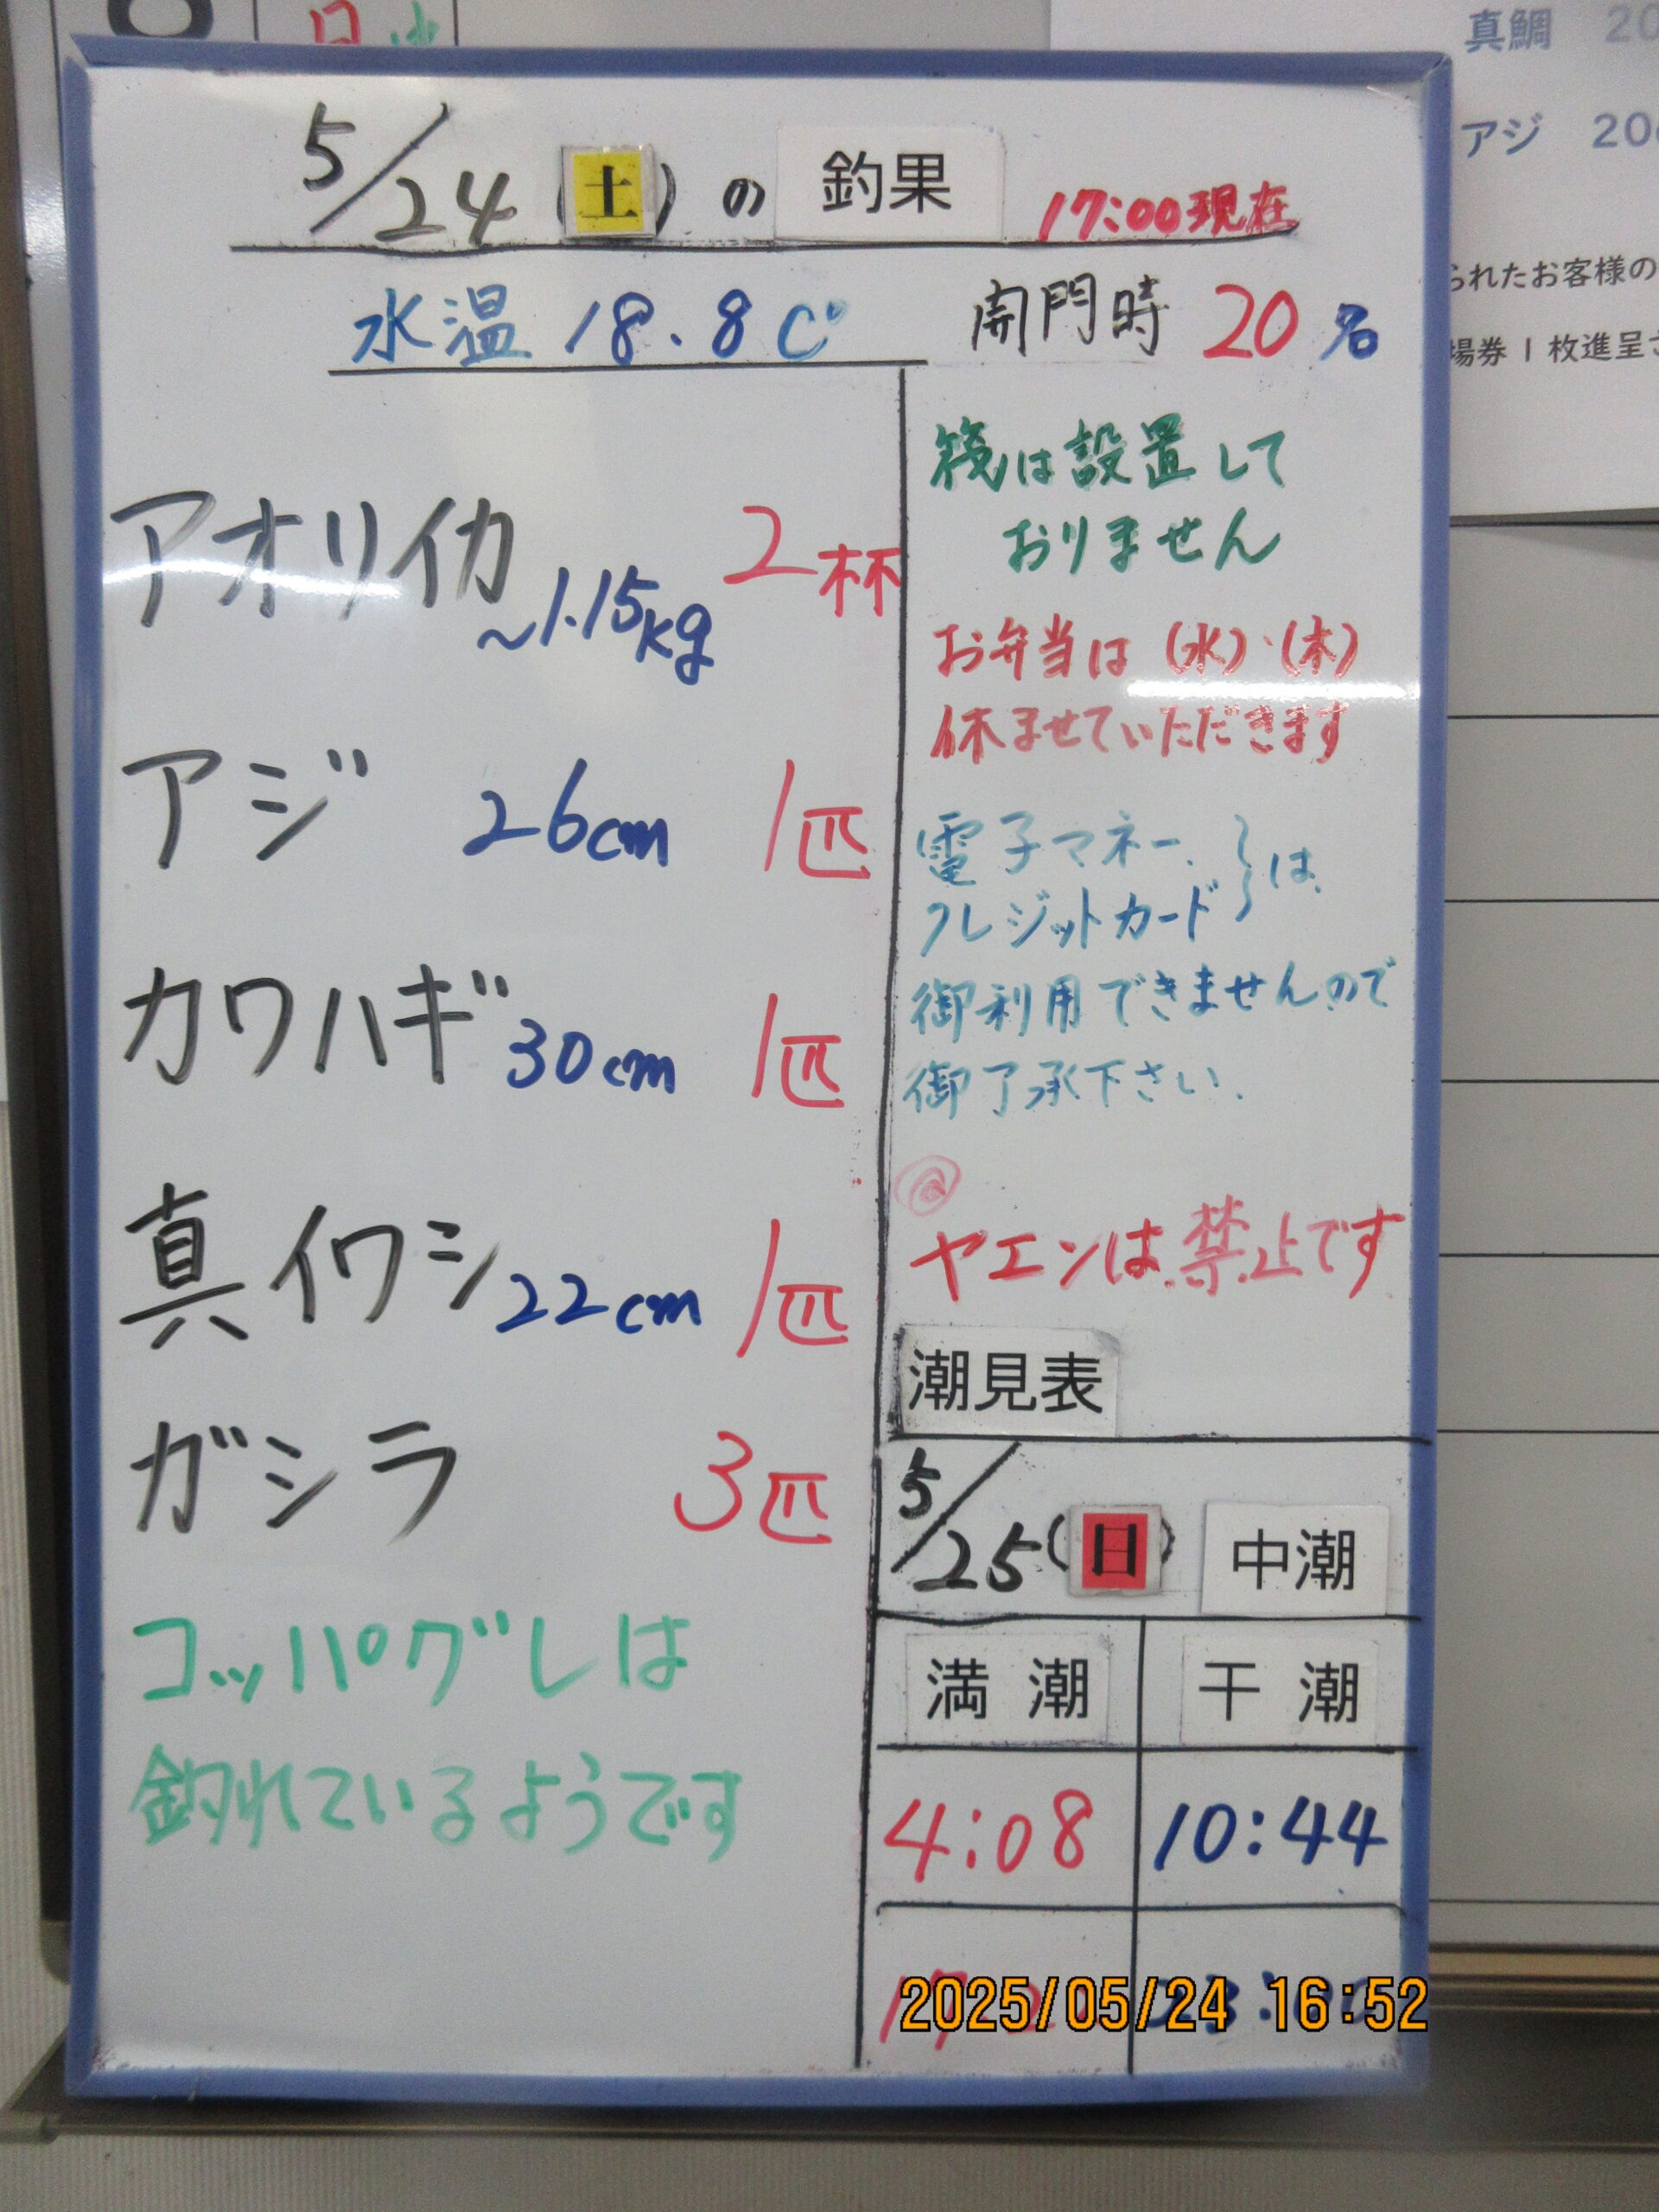 5/24(土)の 釣果 17:00現在
水温 18.8C° 開門時 20名
アオリイカ ~1.15kg 2杯
アジ 26cm 1匹
カワハギ 30cm 1匹
真イワシ 22cm 1匹
ガシラ 3匹
コッパグレは
釣れているようです
筏は設置して
おりません
お弁当は(水)・(木)
休ませていただきます
電子マネー、
クレジットカード は
御利用できませんので
御了承下さい.
◎
ヤエンは禁止です
潮見表
5/25(日) 中潮
満潮 干潮
4:08 10:44
2025/05/24 16:52
真鯛 20
アジ 20
られたお客様の
場券1枚進呈